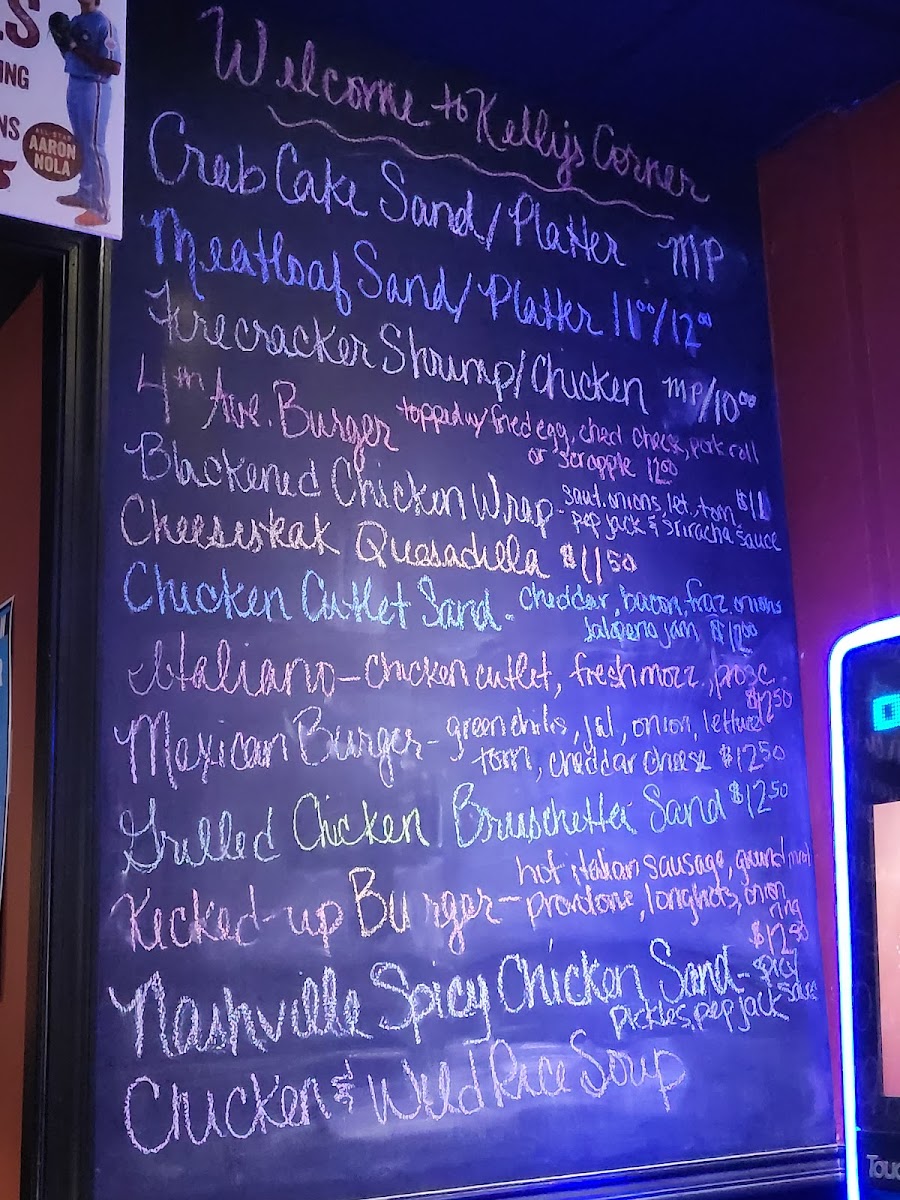 ES
ING
NS
ALL-STAR
AARON
NOLA
5
Welcome to Kelly's Corner
Crab Cake Sand/Platter MP
Meatloaf Sand/Platter 11⁰⁰/12⁰⁰
Firecracker Shrimp/Chicken MP/10⁰⁰
4th Ave. Burger topped w/ fried egg, ched cheese, pork roll
or scrapple 12⁰⁰
Blackened Chicken Wrap - saut. onions, let, tom $11
pep jack & sriracha sauce
Cheesesteak Quesadilla $11⁵⁰
Chicken Cutlet Sand - cheddar, bacon, fraz. onions
Jalapeno jam $12⁰⁰
Italiano - chicken cutlet, fresh mozz., prosc.
$12⁵⁰
Mexican Burger - green chilis, jal, onion, lettuce
tom, cheddar cheese $12⁵⁰
Grilled Chicken Bruschetta Sand $12⁵⁰
hot italian sausage, ground meat
Kicked-up Burger - provolone, longhots, onion
ring
Nashville Spicy Chicken Sand - spicy
pickles, pep jack sauce
Chicken & Wild Rice Soup
Touc